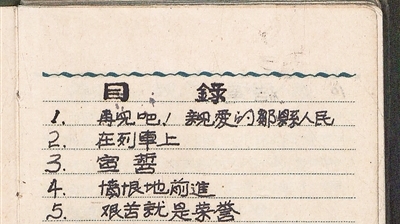 目 錄
1. 再见吧！親爱的鄒縣人民
2. 在列車上
3. 宣誓
4. 憤恨地前進
5. 艰苦就是荣誉